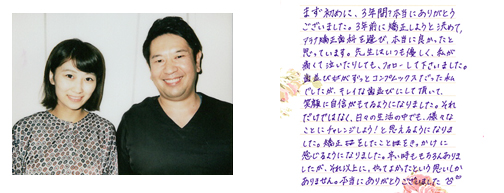 まず初めに、3年間?本当にありがとう
ございました。3年前に矯正しようと決めて、
プラザ矯正歯科を選び、本当に良かったと
思っています。先生はいつも優しく、私が
痛くて泣いたりしても、フォローして下さいました。
歯並びがずっとコンプレックスだった私
でしたが、キレイな歯並びにして頂いて、
笑顔に自信がもてるようになりました。それ
だけではなく、日々の生活の中でも、様々な
ことにチャレンジしよう!と思えるようになりま
した。矯正をしたことはをきっかけに
感じるようになりました。辛い時ももちろんありま
したが、それ以上に、やってよかったという思いしか
ありません。本当にありがとうございました